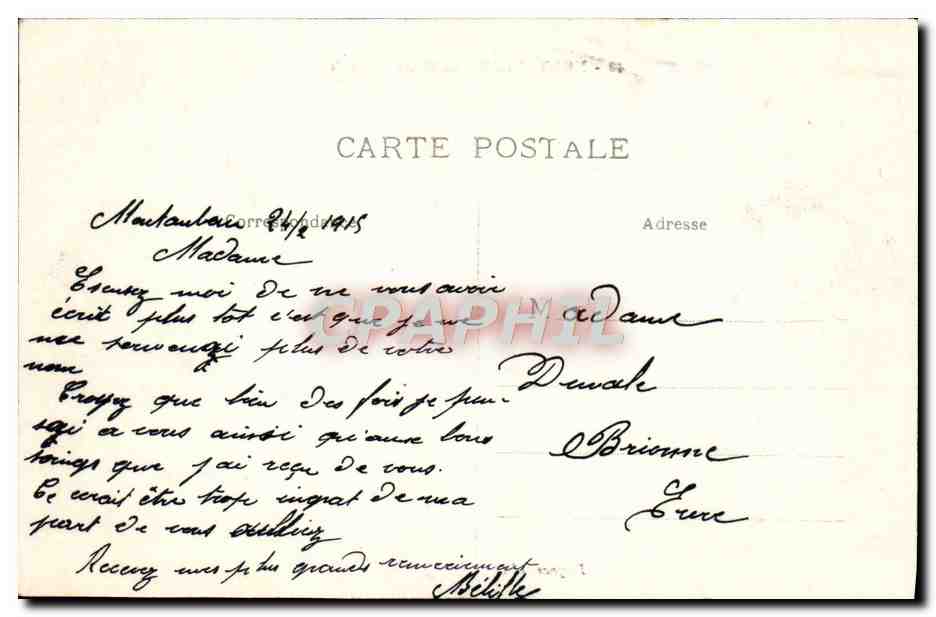 CARTE POSTALE
Correspondance
Adresse
Montauban 21/2 1915
Madame
Escusez moi de ne vous avoir
écrit plus tot c'est que je ne
me souvenez plus de votre
nom
Croyez que bien des fois je pen-
sai a vous aussi qu'aux bons
soings que j'ai reçu de vous.
Ce serait être trop ingrat de ma
part de vous oubliez
Recevez mes plus grands remerciement
Madame
Brionne
Eure
CPAPHIL